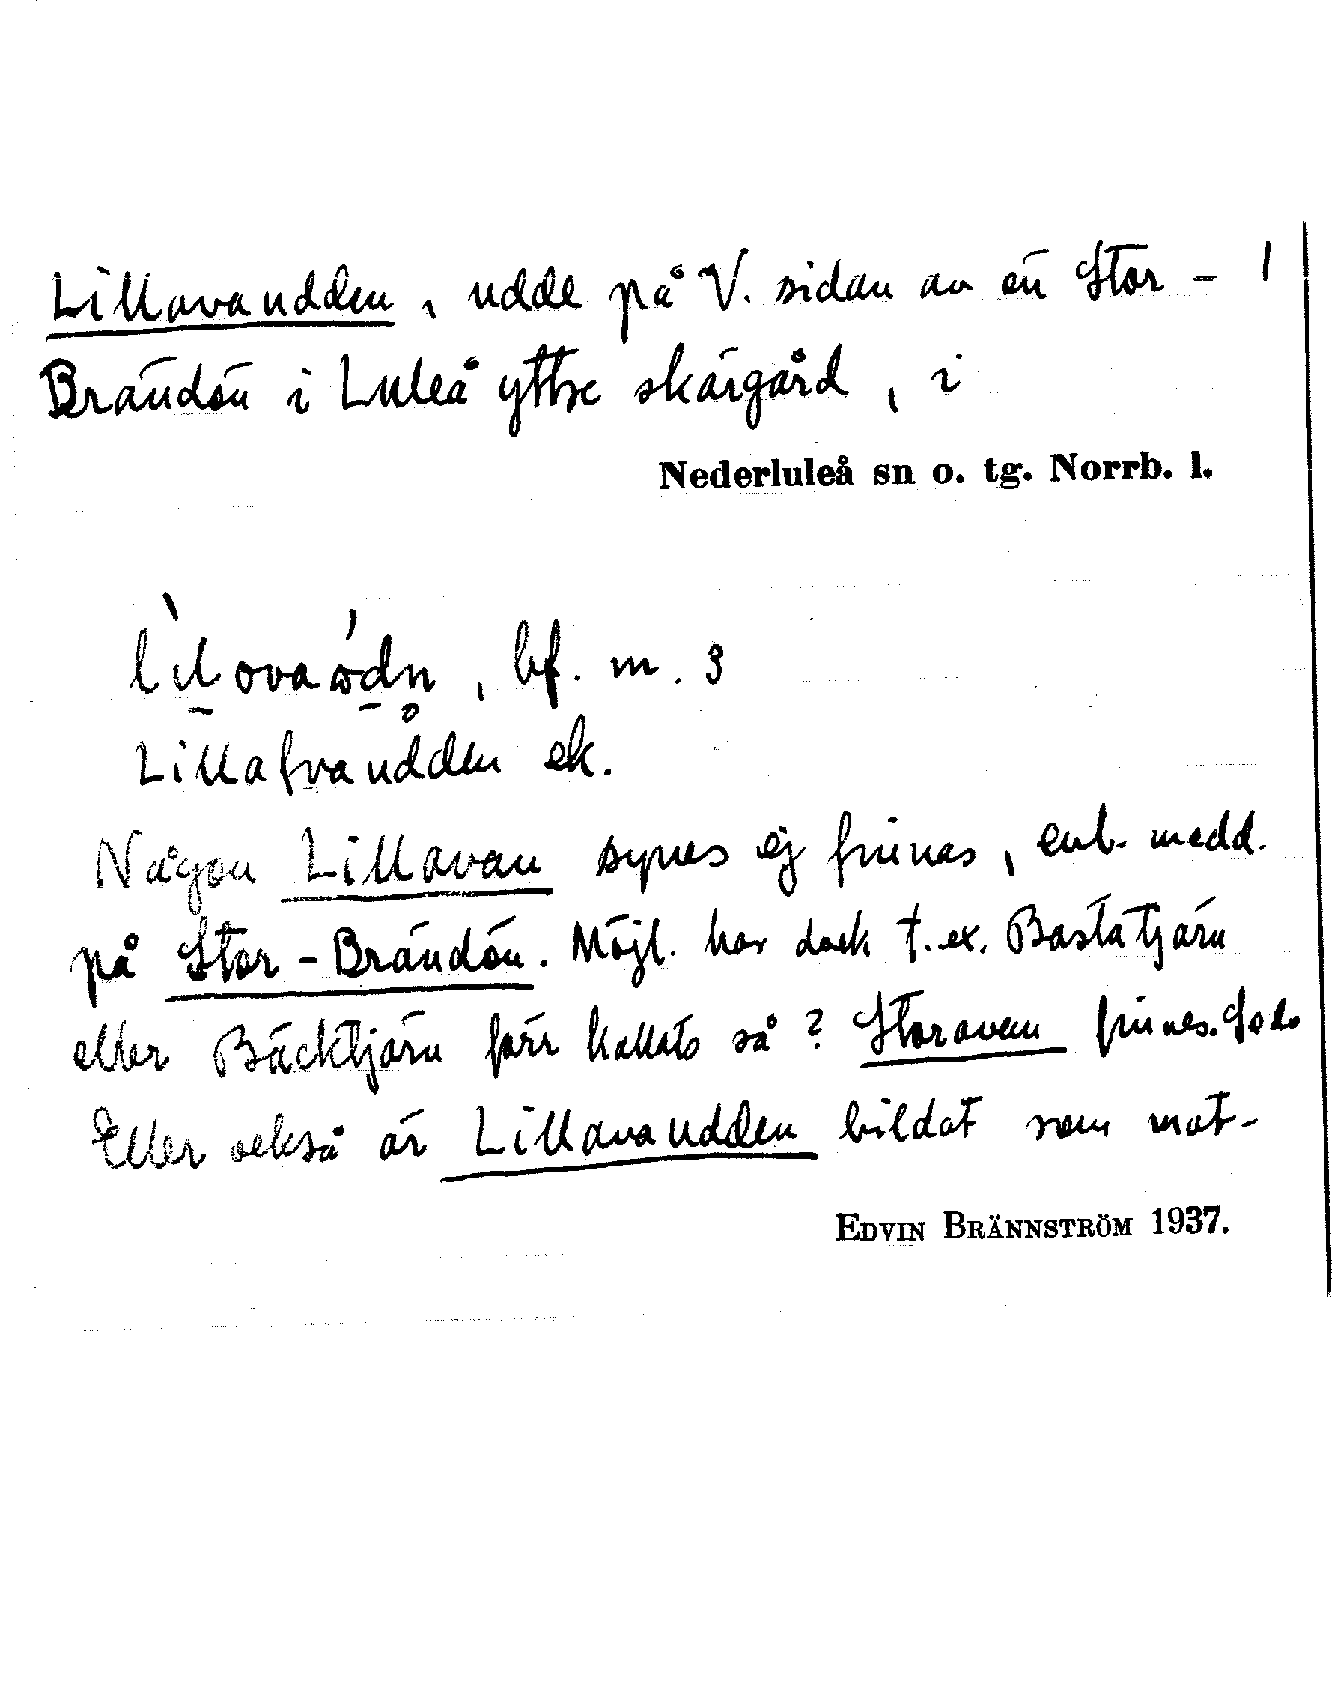 Lillavaudden, udde på V. sidan av ön Stor- 1
Brändön i Luleå yttre skärgård, i
Nederluleå sn o. tg. Norrb. l.
bf. m. 3
Lillafvaudden ek.
Någon Lillavan synes ej finnas, enl. medd.
på Stor-Brändön. Möjl. har dock t.ex. Bastatjärn
eller Bäcktjärn förr kallats så? Storavan finnes.
Eller också är Lillavaudden bildat som mot-
EDVIN BRÄNNSTRÖM 1937.